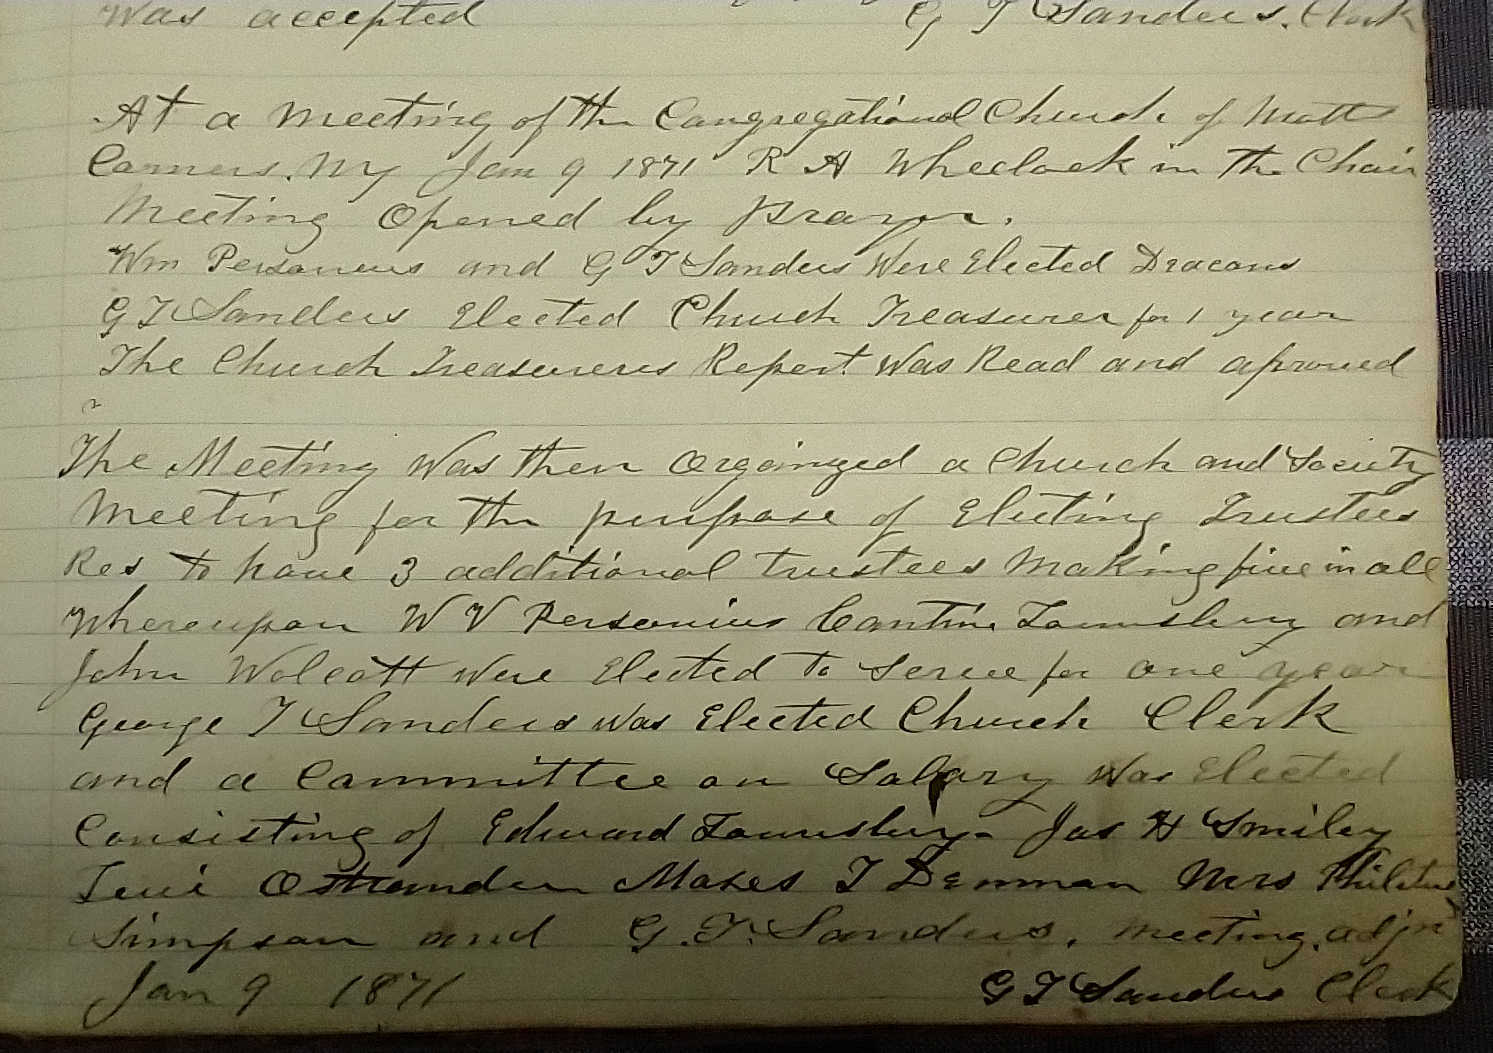 Was accepted G T Sanders. Clerk
At a Meeting of the Congregational Church of Motts
Corners. NY Jan 9 1871 R A Wheelock in the Chair
Meeting Opened by Prayer.
Wm Personeus and G T Sanders Were Elected Deacons
G T Sanders Elected Church Treasurer for 1 year
The Church Treasurers Report Was Read and aproved
The Meeting Was then Organized a Church and Society
Meeting for the purpose of Electing Trustees
Res to have 3 additional trustees Making five in all
Whereupon W V Personius Cantine Lounsbury and
John Wolcott were Elected to serve for one year
George T Sanders was Elected Church Clerk
and a Committee on Salary Was Elected
Consisting of Edward Lounsbury - Jas H Smiley
Levi Ostrander Moses T Denman Mrs
Simpson and G. T. Sanders, Meeting. adjn
Jan 9 1871 G T Sanders Clerk